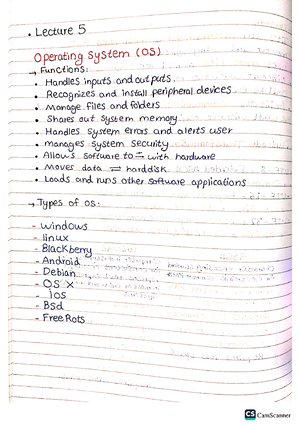 • Lecture 5
Operating System (OS)
→ Functions:
• Handles inputs and outputs.
• Recognizes and install peripheral devices
• Manage files and folders
• Shares out system memory
• Handles System errors and alerts user
• manages System Security
• Allows software to ⇌ with hardware
• Moves data ⇌ harddisk
• Loads and runs other software applications
→ Types of os:
- windows
- linux
- Blackberry
- Android
- Debian
- OS X
- ios
- Bsd
- Free Rots
CS CamScanner